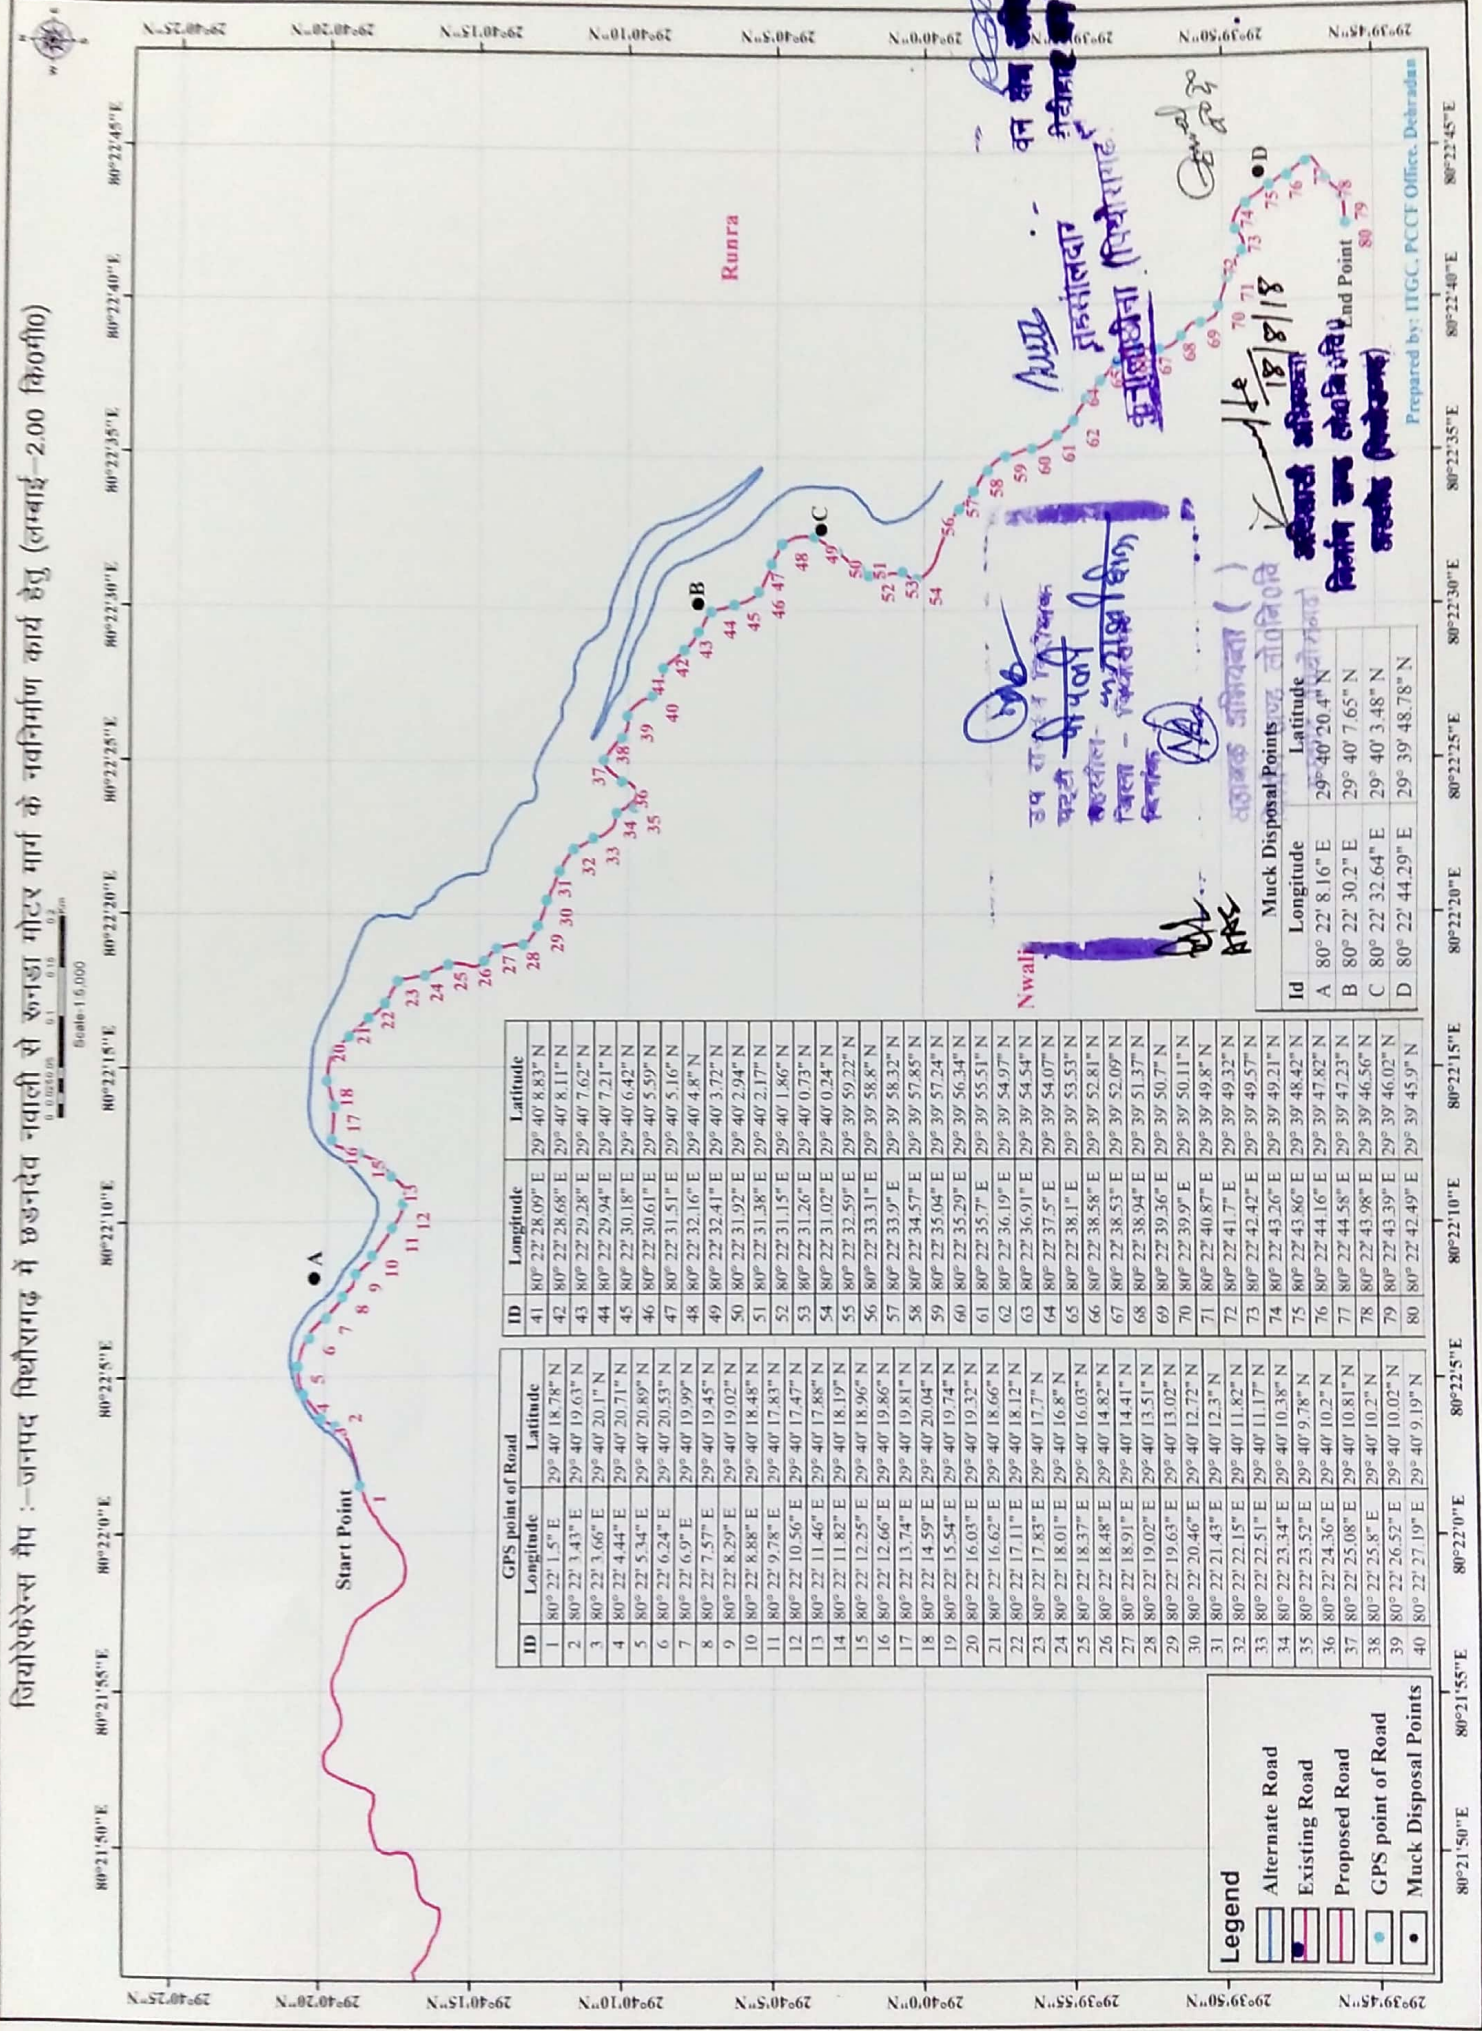 जियोरेफेरेन्स मैप :–जनपद पिथौरागढ़ में छडनदेव नवाली से रूनडा मोटर मार्ग के नवनिर्माण कार्य हेतु (लम्बाई–2.00 कि०मी०)
Scale-1:5,000
80°21'50"E 80°21'55"E 80°22'0"E 80°22'5"E 80°22'10"E 80°22'15"E 80°22'20"E 80°22'25"E 80°22'30"E 80°22'35"E 80°22'40"E 80°22'45"E
29°40'25"N 29°40'25"N
29°40'20"N 29°40'20"N
29°40'15"N 29°40'15"N
29°40'10"N 29°40'10"N
29°40'5"N 29°40'5"N
29°40'0"N 29°40'0"N
29°39'55"N
29°39'50"N 29°39'50"N
29°39'45"N 29°39'45"N
Start Point
A
B
C
D
Runra
Nwali
End Point
GPS point of Road
ID Longitude Latitude
1 80° 22' 1.5" E 29° 40' 18.78" N
2 80° 22' 3.43" E 29° 40' 19.63" N
3 80° 22' 3.66" E 29° 40' 20.1" N
4 80° 22' 4.44" E 29° 40' 20.71" N
5 80° 22' 5.34" E 29° 40' 20.89" N
6 80° 22' 6.24" E 29° 40' 20.53" N
7 80° 22' 6.9" E 29° 40' 19.99" N
8 80° 22' 7.57" E 29° 40' 19.45" N
9 80° 22' 8.29" E 29° 40' 19.02" N
10 80° 22' 8.88" E 29° 40' 18.48" N
11 80° 22' 9.78" E 29° 40' 17.83" N
12 80° 22' 10.56" E 29° 40' 17.47" N
13 80° 22' 11.46" E 29° 40' 17.88" N
14 80° 22' 11.82" E 29° 40' 18.19" N
15 80° 22' 12.25" E 29° 40' 18.96" N
16 80° 22' 12.66" E 29° 40' 19.86" N
17 80° 22' 13.74" E 29° 40' 19.81" N
18 80° 22' 14.59" E 29° 40' 20.04" N
19 80° 22' 15.54" E 29° 40' 19.74" N
20 80° 22' 16.03" E 29° 40' 19.32" N
21 80° 22' 16.62" E 29° 40' 18.66" N
22 80° 22' 17.11" E 29° 40' 18.12" N
23 80° 22' 17.83" E 29° 40' 17.7" N
24 80° 22' 18.01" E 29° 40' 16.8" N
25 80° 22' 18.37" E 29° 40' 16.03" N
26 80° 22' 18.48" E 29° 40' 14.82" N
27 80° 22' 18.91" E 29° 40' 14.41" N
28 80° 22' 19.02" E 29° 40' 13.51" N
29 80° 22' 19.63" E 29° 40' 13.02" N
30 80° 22' 20.46" E 29° 40' 12.72" N
31 80° 22' 21.43" E 29° 40' 12.3" N
32 80° 22' 22.15" E 29° 40' 11.82" N
33 80° 22' 22.51" E 29° 40' 11.17" N
34 80° 22' 23.34" E 29° 40' 10.38" N
35 80° 22' 23.52" E 29° 40' 9.78" N
36 80° 22' 24.36" E 29° 40' 10.2" N
37 80° 22' 25.08" E 29° 40' 10.81" N
38 80° 22' 25.8" E 29° 40' 10.2" N
39 80° 22' 26.52" E 29° 40' 10.02" N
40 80° 22' 27.19" E 29° 40' 9.19" N
ID Longitude Latitude
41 80° 22' 28.09" E 29° 40' 8.83" N
42 80° 22' 28.68" E 29° 40' 8.11" N
43 80° 22' 29.28" E 29° 40' 7.62" N
44 80° 22' 29.94" E 29° 40' 7.21" N
45 80° 22' 30.18" E 29° 40' 6.42" N
46 80° 22' 30.61" E 29° 40' 5.59" N
47 80° 22' 31.51" E 29° 40' 5.16" N
48 80° 22' 32.16" E 29° 40' 4.8" N
49 80° 22' 32.41" E 29° 40' 3.72" N
50 80° 22' 31.92" E 29° 40' 2.94" N
51 80° 22' 31.38" E 29° 40' 2.17" N
52 80° 22' 31.15" E 29° 40' 1.86" N
53 80° 22' 31.26" E 29° 40' 0.73" N
54 80° 22' 31.02" E 29° 40' 0.24" N
55 80° 22' 32.59" E 29° 39' 59.22" N
56 80° 22' 33.31" E 29° 39' 58.8" N
57 80° 22' 33.9" E 29° 39' 58.32" N
58 80° 22' 34.57" E 29° 39' 57.85" N
59 80° 22' 35.04" E 29° 39' 57.24" N
60 80° 22' 35.29" E 29° 39' 56.34" N
61 80° 22' 35.7" E 29° 39' 55.51" N
62 80° 22' 36.19" E 29° 39' 54.97" N
63 80° 22' 36.91" E 29° 39' 54.54" N
64 80° 22' 37.5" E 29° 39' 54.07" N
65 80° 22' 38.1" E 29° 39' 53.53" N
66 80° 22' 38.58" E 29° 39' 52.81" N
67 80° 22' 38.53" E 29° 39' 52.09" N
68 80° 22' 38.94" E 29° 39' 51.37" N
69 80° 22' 39.36" E 29° 39' 50.7" N
70 80° 22' 39.9" E 29° 39' 50.11" N
71 80° 22' 40.87" E 29° 39' 49.8" N
72 80° 22' 41.7" E 29° 39' 49.32" N
73 80° 22' 42.42" E 29° 39' 49.57" N
74 80° 22' 43.26" E 29° 39' 49.21" N
75 80° 22' 43.86" E 29° 39' 48.42" N
76 80° 22' 44.16" E 29° 39' 47.82" N
77 80° 22' 44.58" E 29° 39' 47.23" N
78 80° 22' 43.98" E 29° 39' 46.56" N
79 80° 22' 43.39" E 29° 39' 46.02" N
80 80° 22' 42.49" E 29° 39' 45.9" N
Muck Disposal Points
Id Longitude Latitude
A 80° 22' 8.16" E 29° 40' 20.4" N
B 80° 22' 30.2" E 29° 40' 7.65" N
C 80° 22' 32.64" E 29° 40' 3.48" N
D 80° 22' 44.29" E 29° 39' 48.78" N
तहसीलदार
18/8/18
Legend
Alternate Road
Existing Road
Proposed Road
GPS point of Road
Muck Disposal Points
Prepared by: ITGC, PCCF Office, Dehradun
80°21'50"E 80°21'55"E 80°22'0"E 80°22'5"E 80°22'10"E 80°22'15"E 80°22'20"E 80°22'25"E 80°22'30"E 80°22'35"E 80°22'40"E 80°22'45"E